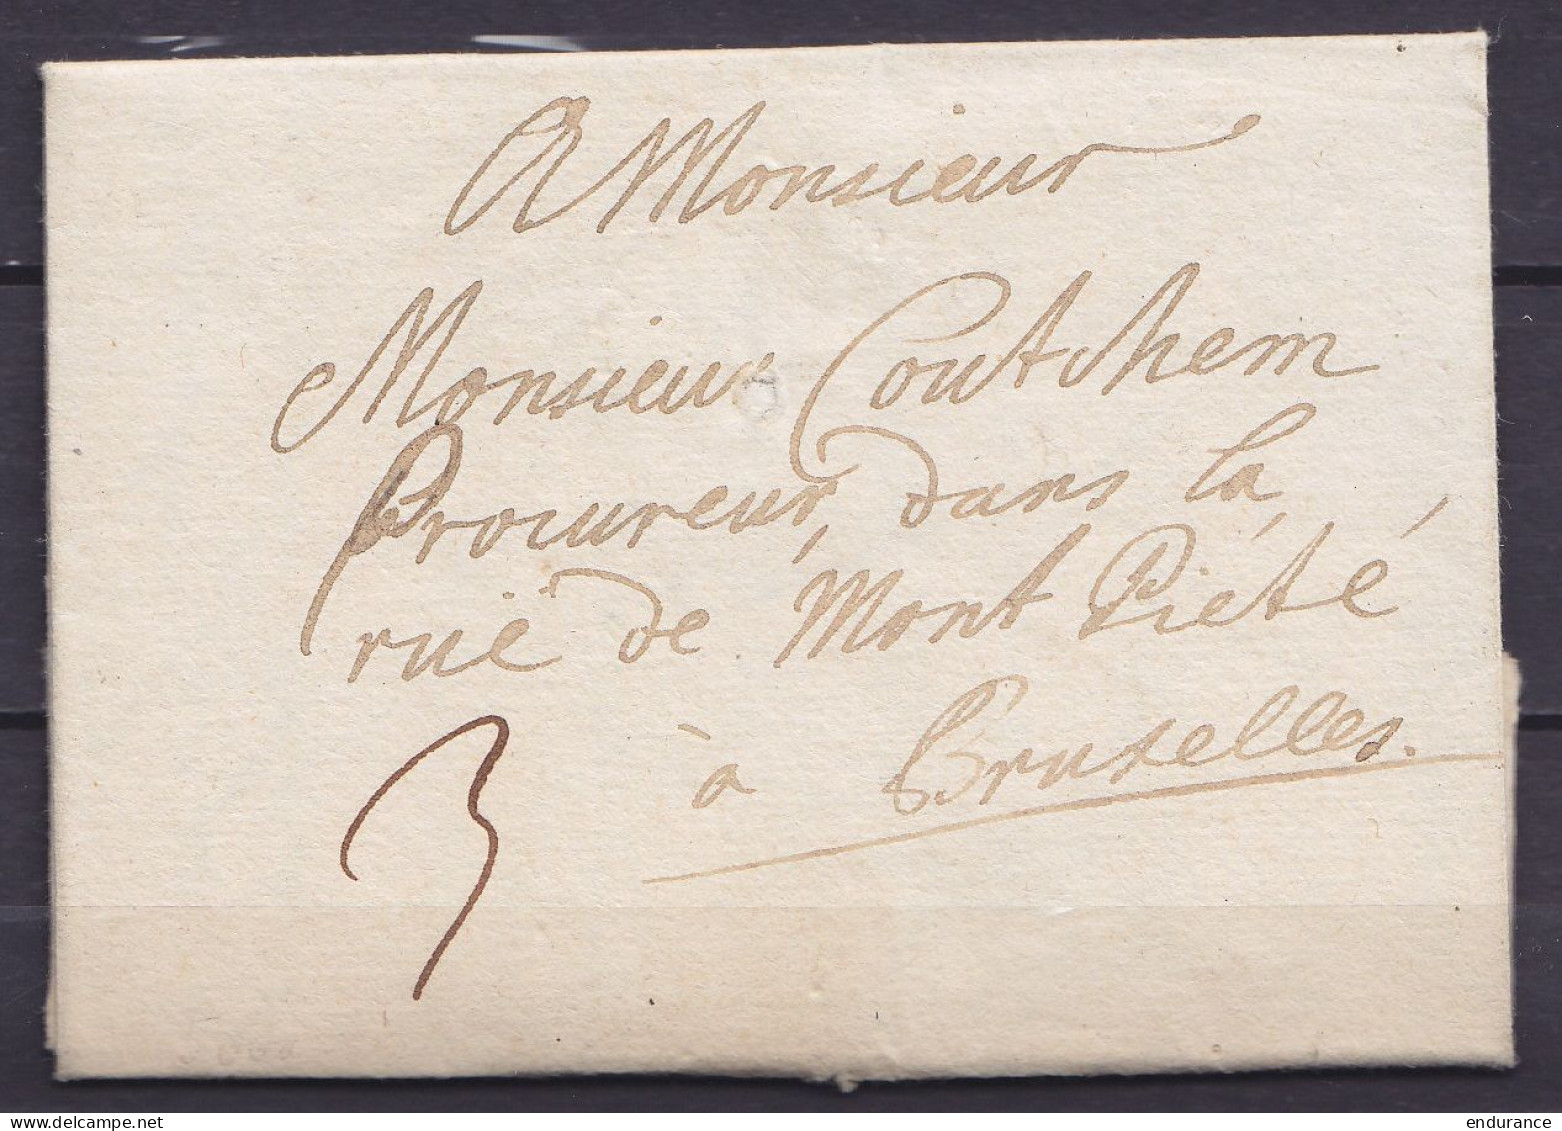 A Monsieur
Monsieur Coutshem
Procureur, dans la
ruë de Mont Pieté
à Bruxelles.
3
www.delcampe.net
endurance